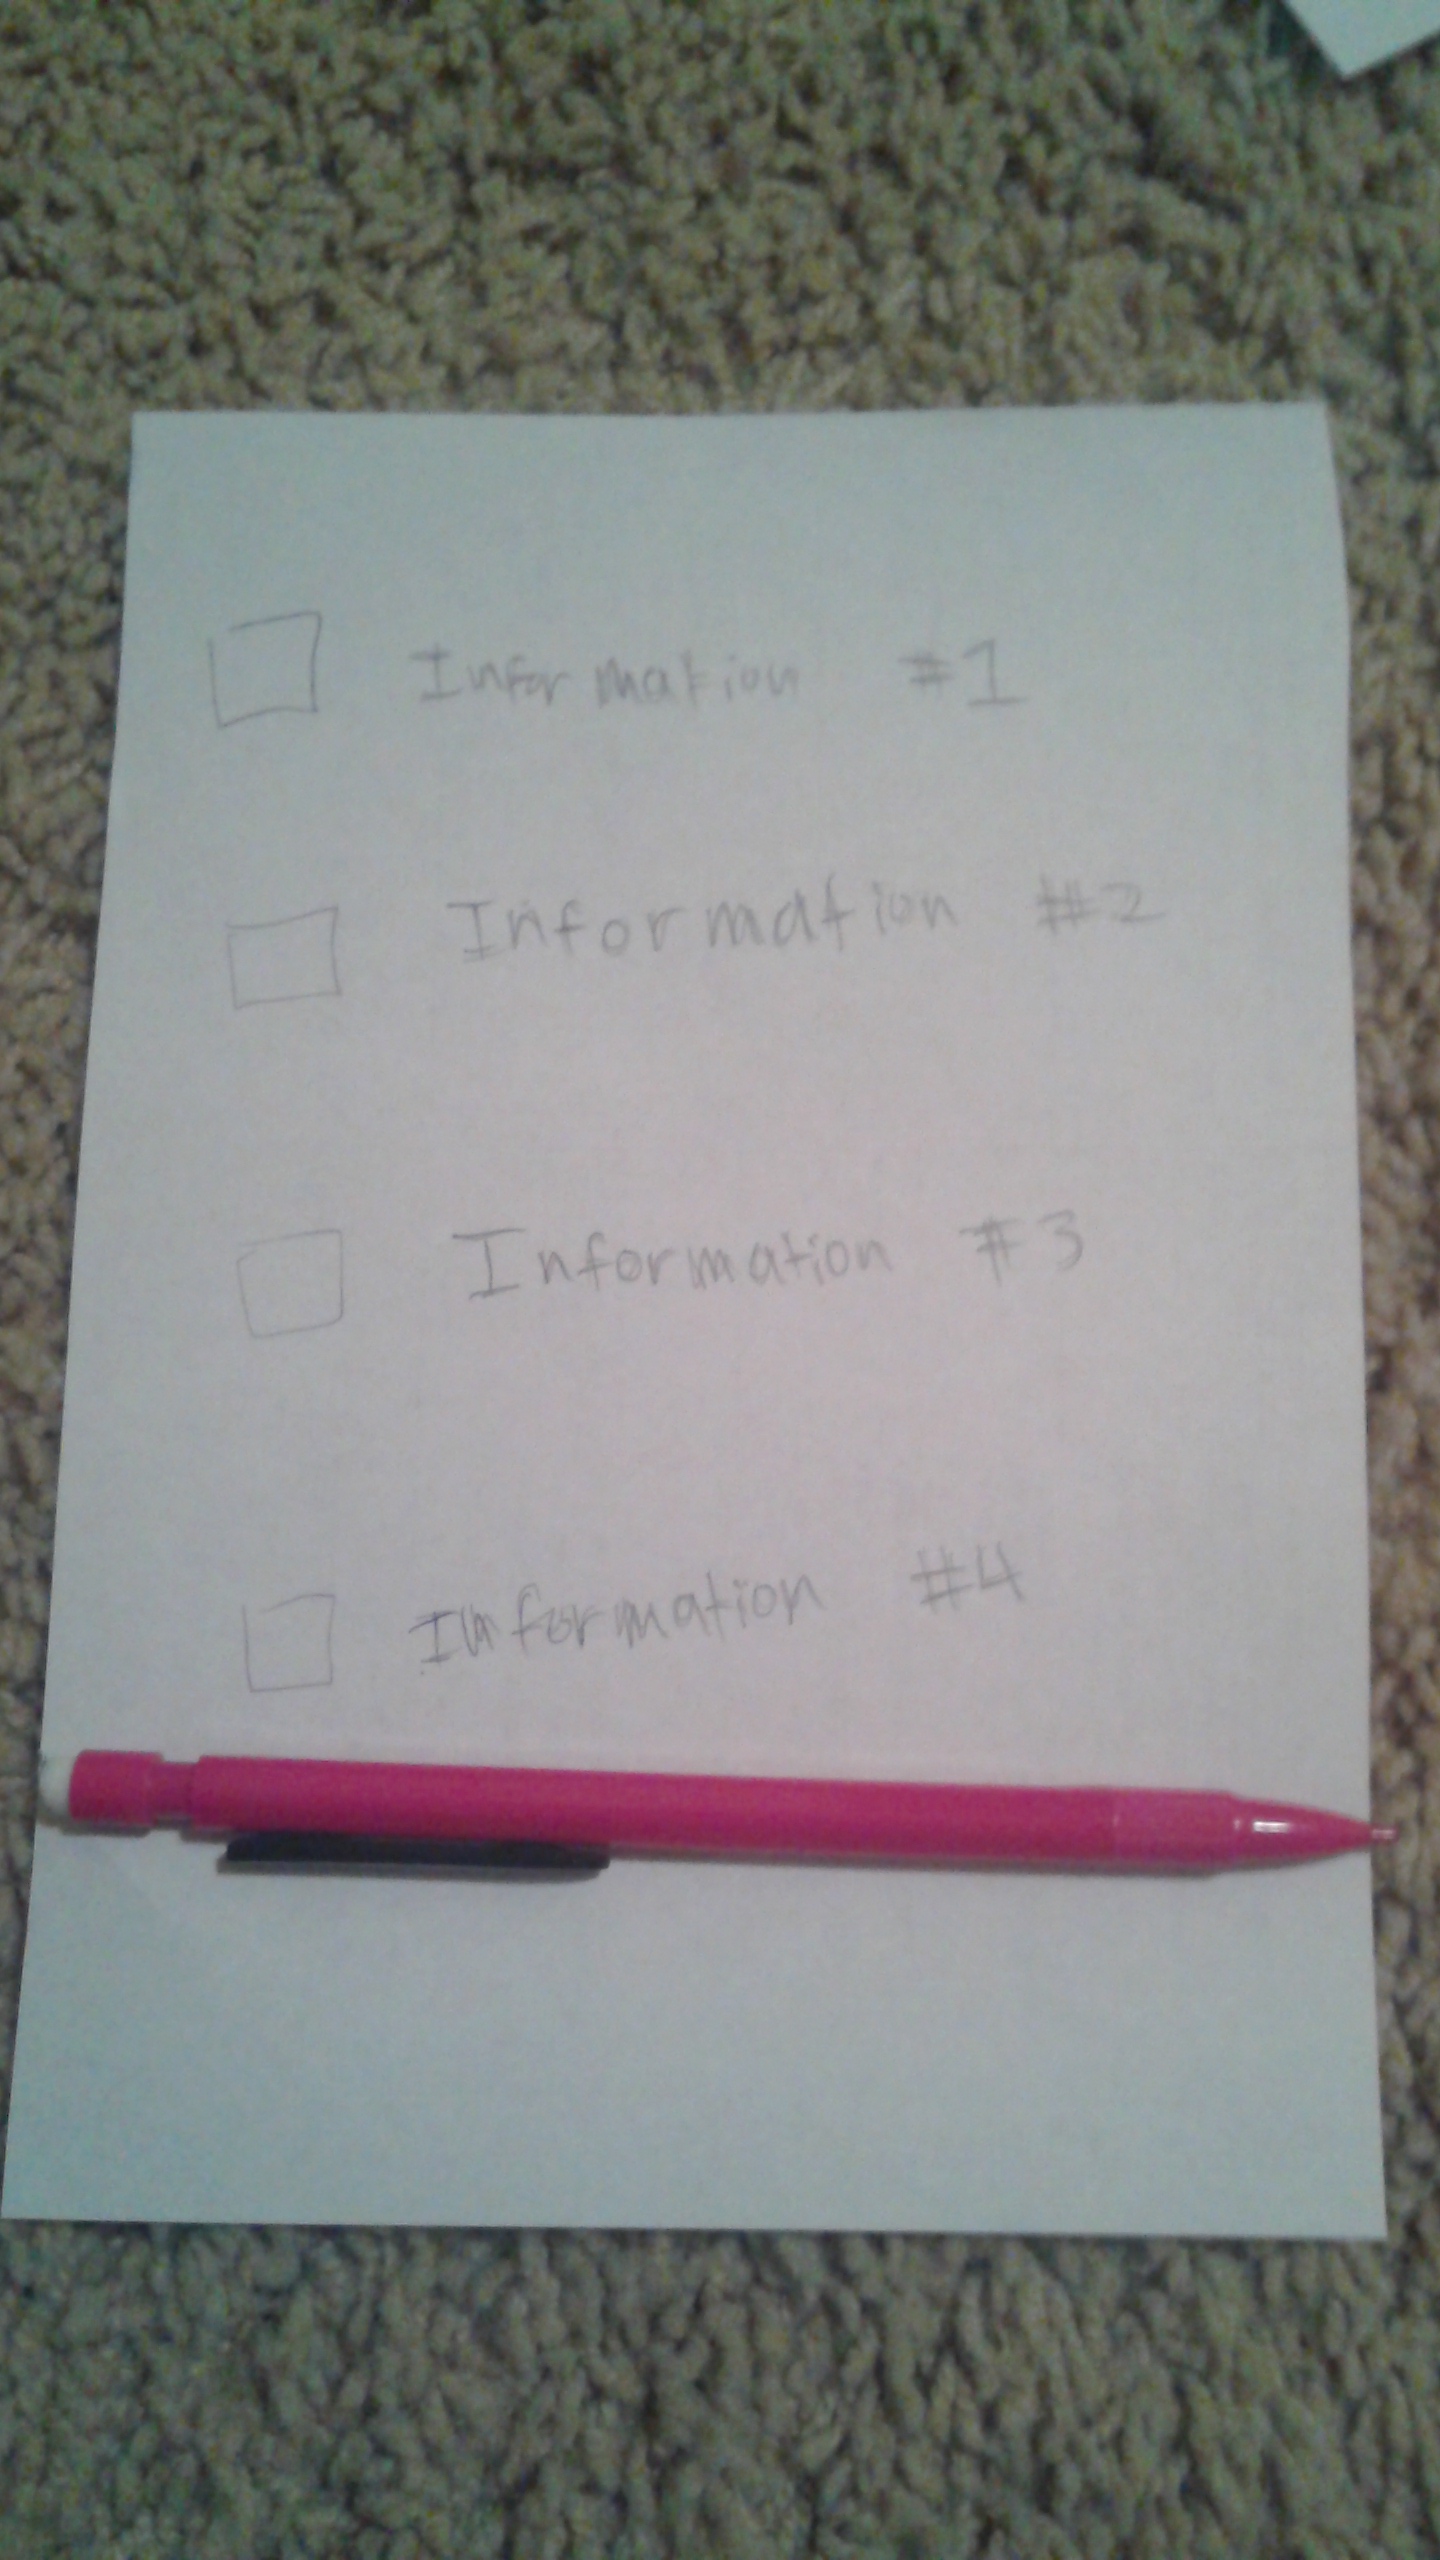 Information #1
Information #2
Information #3
Information #4